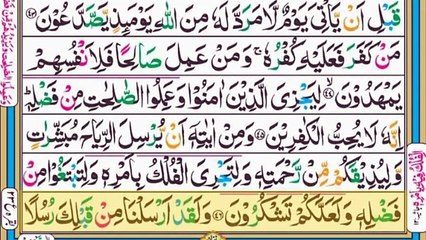 قَبْلِ اَنْ یَّاْتِیَ یَوْمٌ لَّا مَرَدَّ لَهٗ مِنَ اللّٰهِ یَوْمَىِٕذٍ یَّصَّدَّعُوْنَ ﴿۴۳﴾
مَنْ كَفَرَ فَعَلَیْهِ كُفْرُهٗ ۚ وَ مَنْ عَمِلَ صَالِحًا فَلِاَنْفُسِهِمْ
یَمْهَدُوْنَ ﴿۴۴﴾ لِیَجْزِیَ الَّذِیْنَ اٰمَنُوْا وَ عَمِلُوا الصّٰلِحٰتِ مِنْ فَضْلِهٖ ؕ
اِنَّهٗ لَا یُحِبُّ الْكٰفِرِیْنَ ﴿۴۵﴾ وَ مِنْ اٰیٰتِهٖۤ اَنْ یُّرْسِلَ الرِّیَاحَ مُبَشِّرٰتٍ
وَّ لِیُذِیْقَكُمْ مِّنْ رَّحْمَتِهٖ وَ لِتَجْرِیَ الْفُلْكُ بِاَمْرِهٖ وَ لِتَبْتَغُوْا مِنْ
فَضْلِهٖ وَ لَعَلَّكُمْ تَشْكُرُوْنَ ﴿۴۶﴾ وَ لَقَدْ اَرْسَلْنَا مِنْ قَبْلِكَ رُسُلًا